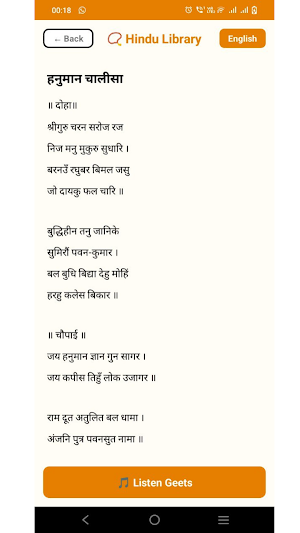 00:18
← Back
Hindu Library
English
हनुमान चालीसा
॥ दोहा॥
श्रीगुरु चरन सरोज रज
निज मनु मुकुरु सुधारि ।
बरनउँ रघुबर बिमल जसु
जो दायकु फल चारि ॥
बुद्धिहीन तनु जानिके
सुमिरौं पवन-कुमार ।
बल बुधि बिद्या देहु मोहिं
हरहु कलेस बिकार ॥
॥ चौपाई ॥
जय हनुमान ज्ञान गुन सागर ।
जय कपीस तिहुँ लोक उजागर ॥
राम दूत अतुलित बल धामा ।
अंजनि पुत्र पवनसुत नामा ॥
Listen Geets